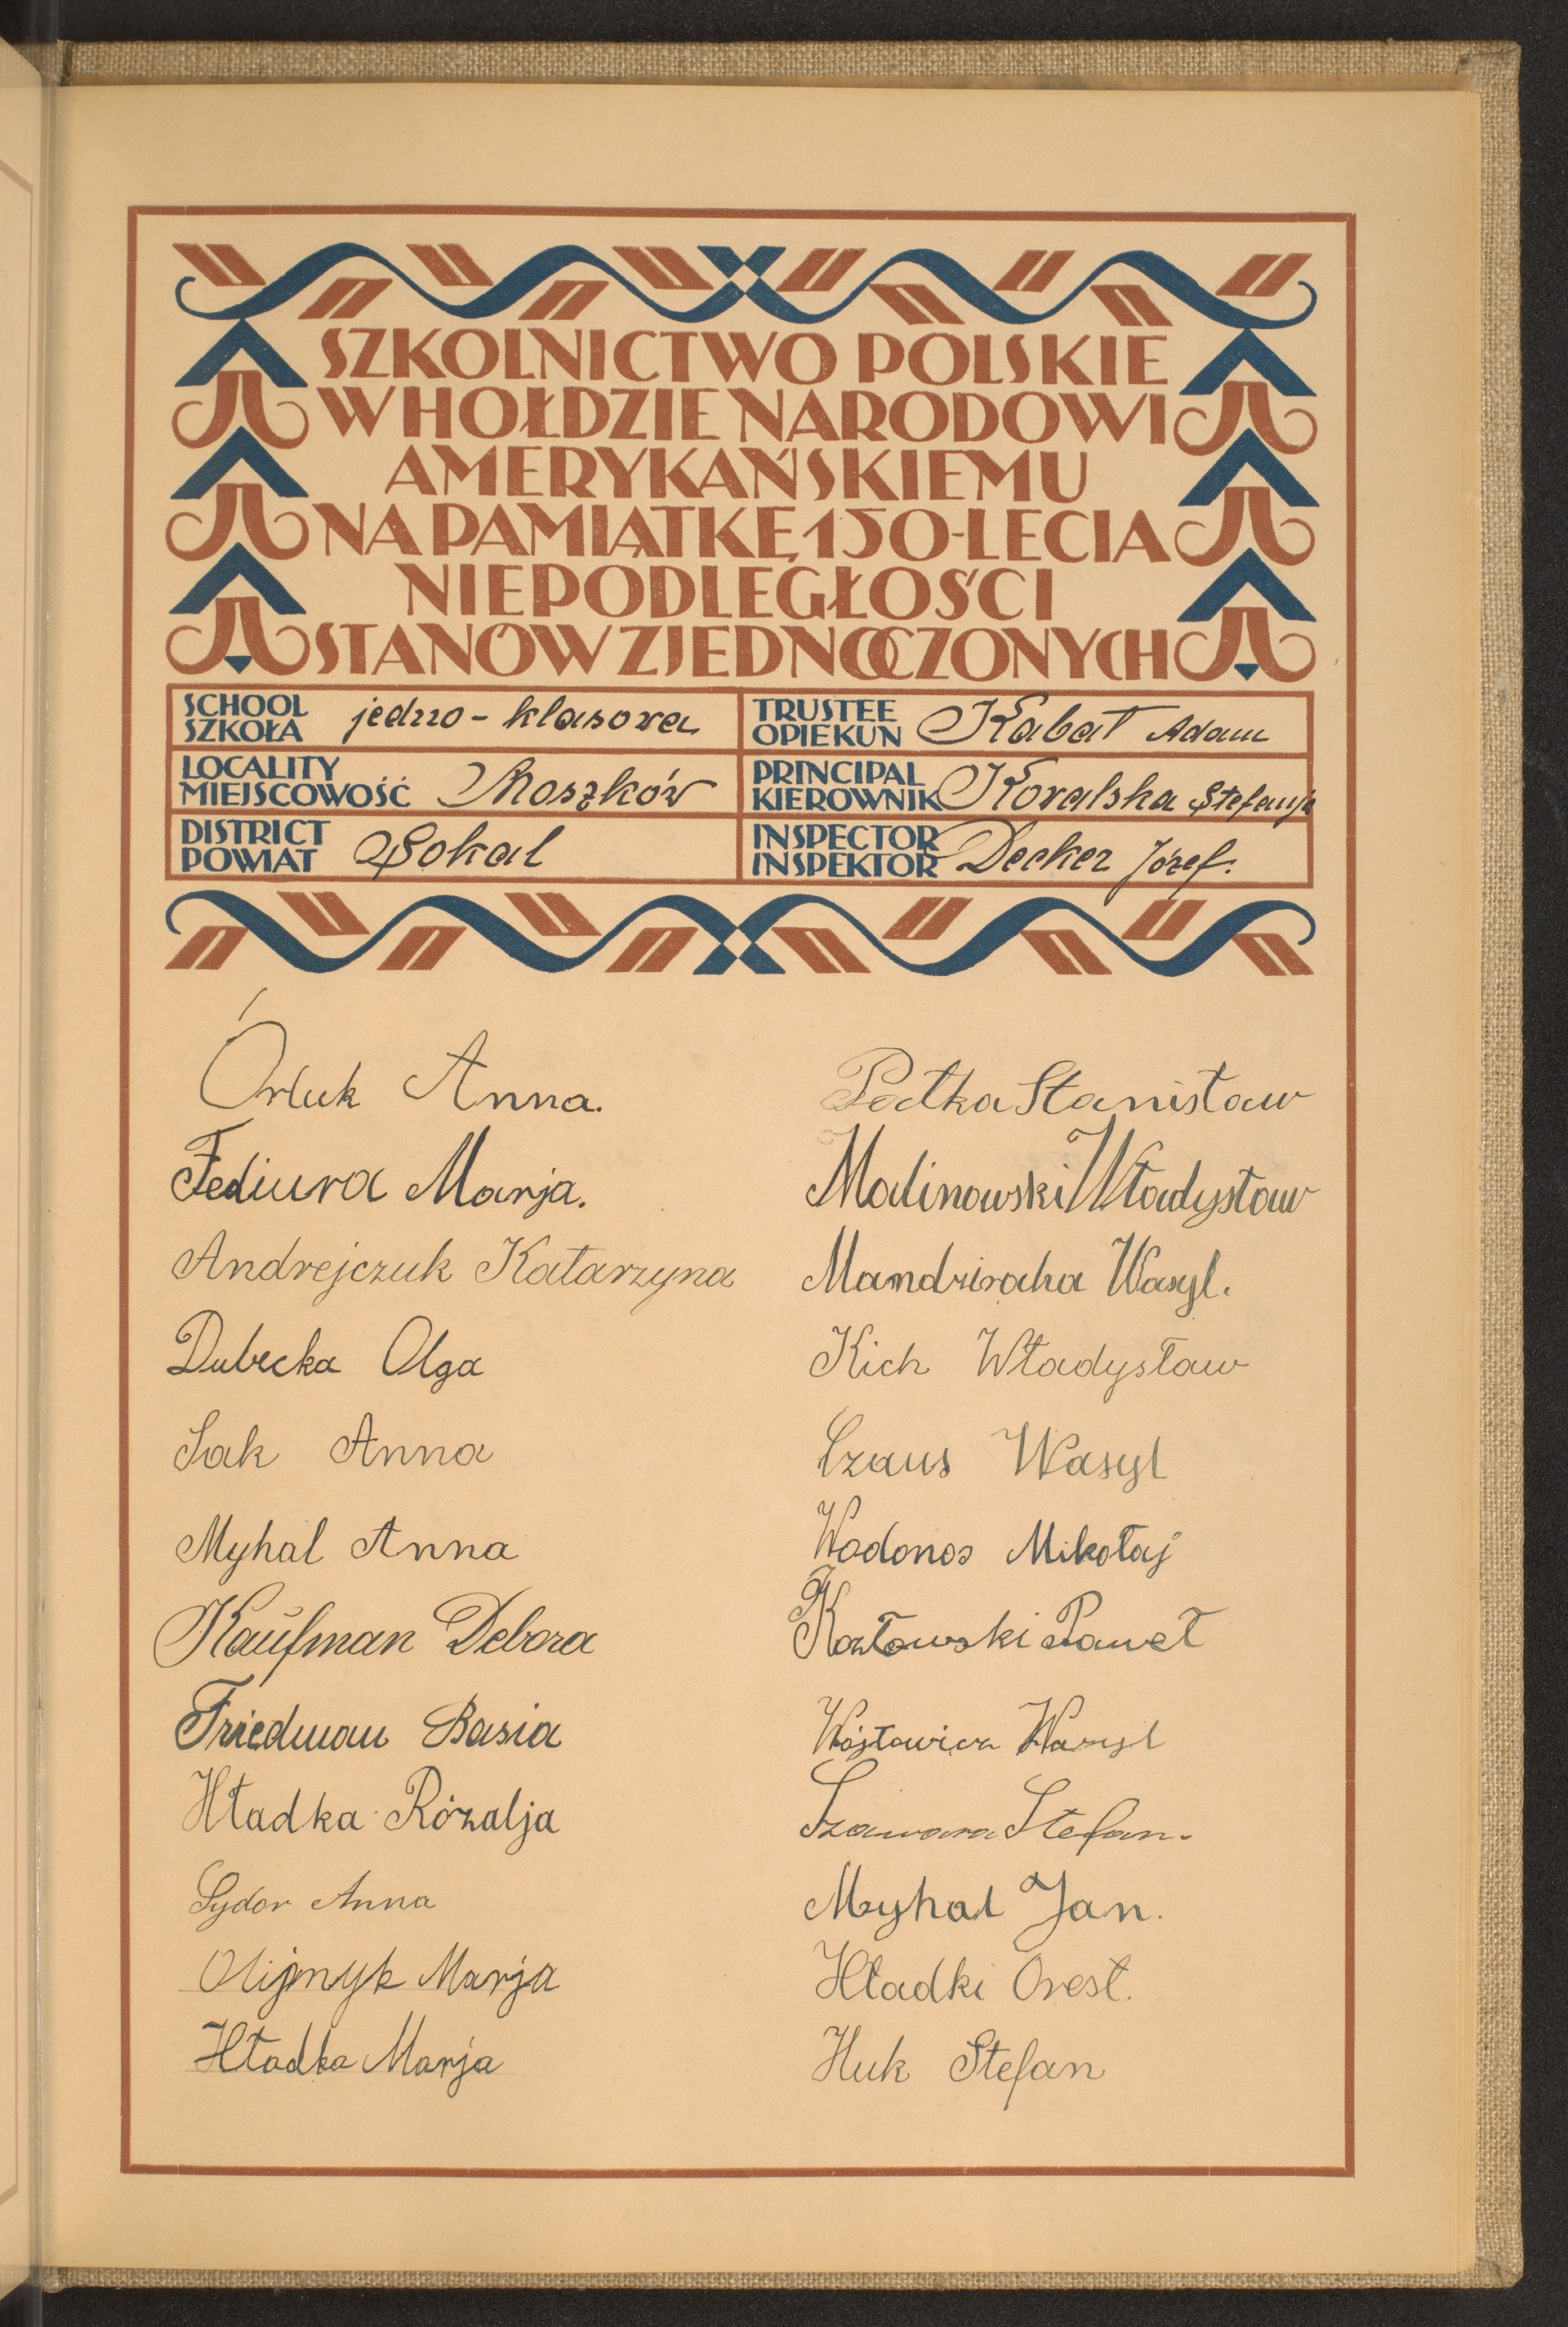 SZKOLNICTWO POLSKIE
W HOŁDZIE NARODOWI
AMERYKAŃSKIEMU
NA PAMIĄTKĘ 150-LECIA
NIEPODLEGŁOŚCI
STANÓW ZJEDNOCZONYCH
SCHOOL
SZKOŁA jedno-klasowa
TRUSTEE
OPIEKUN Kabat Adam
LOCALITY
MIEJSCOWOŚĆ Moszków
PRINCIPAL
KIEROWNIK Kowalska Stefanja
DISTRICT
POWIAT Sokal
INSPECTOR
INSPEKTOR Decker Józef.
Órluk Anna.
Fediura Marja.
Andrejczuk Katarzyna
Dubecka Olga
Sak Anna
Myhal Anna
Kaufman Debora
Friedman Basia
Hładka Rózalja
Sydor Anna
Olijnyk Marja
Hładka Marja
Stanisław
Malinowski Władysław
Wasyl.
Kich Władysław
Czaus Wasyl
Wodonos Mikołaj
Kozłowski Paweł
Wójtowicz Wasyl
Szawara Stefan.
Myhal Jan.
Hładki Orest.
Huk Stefan